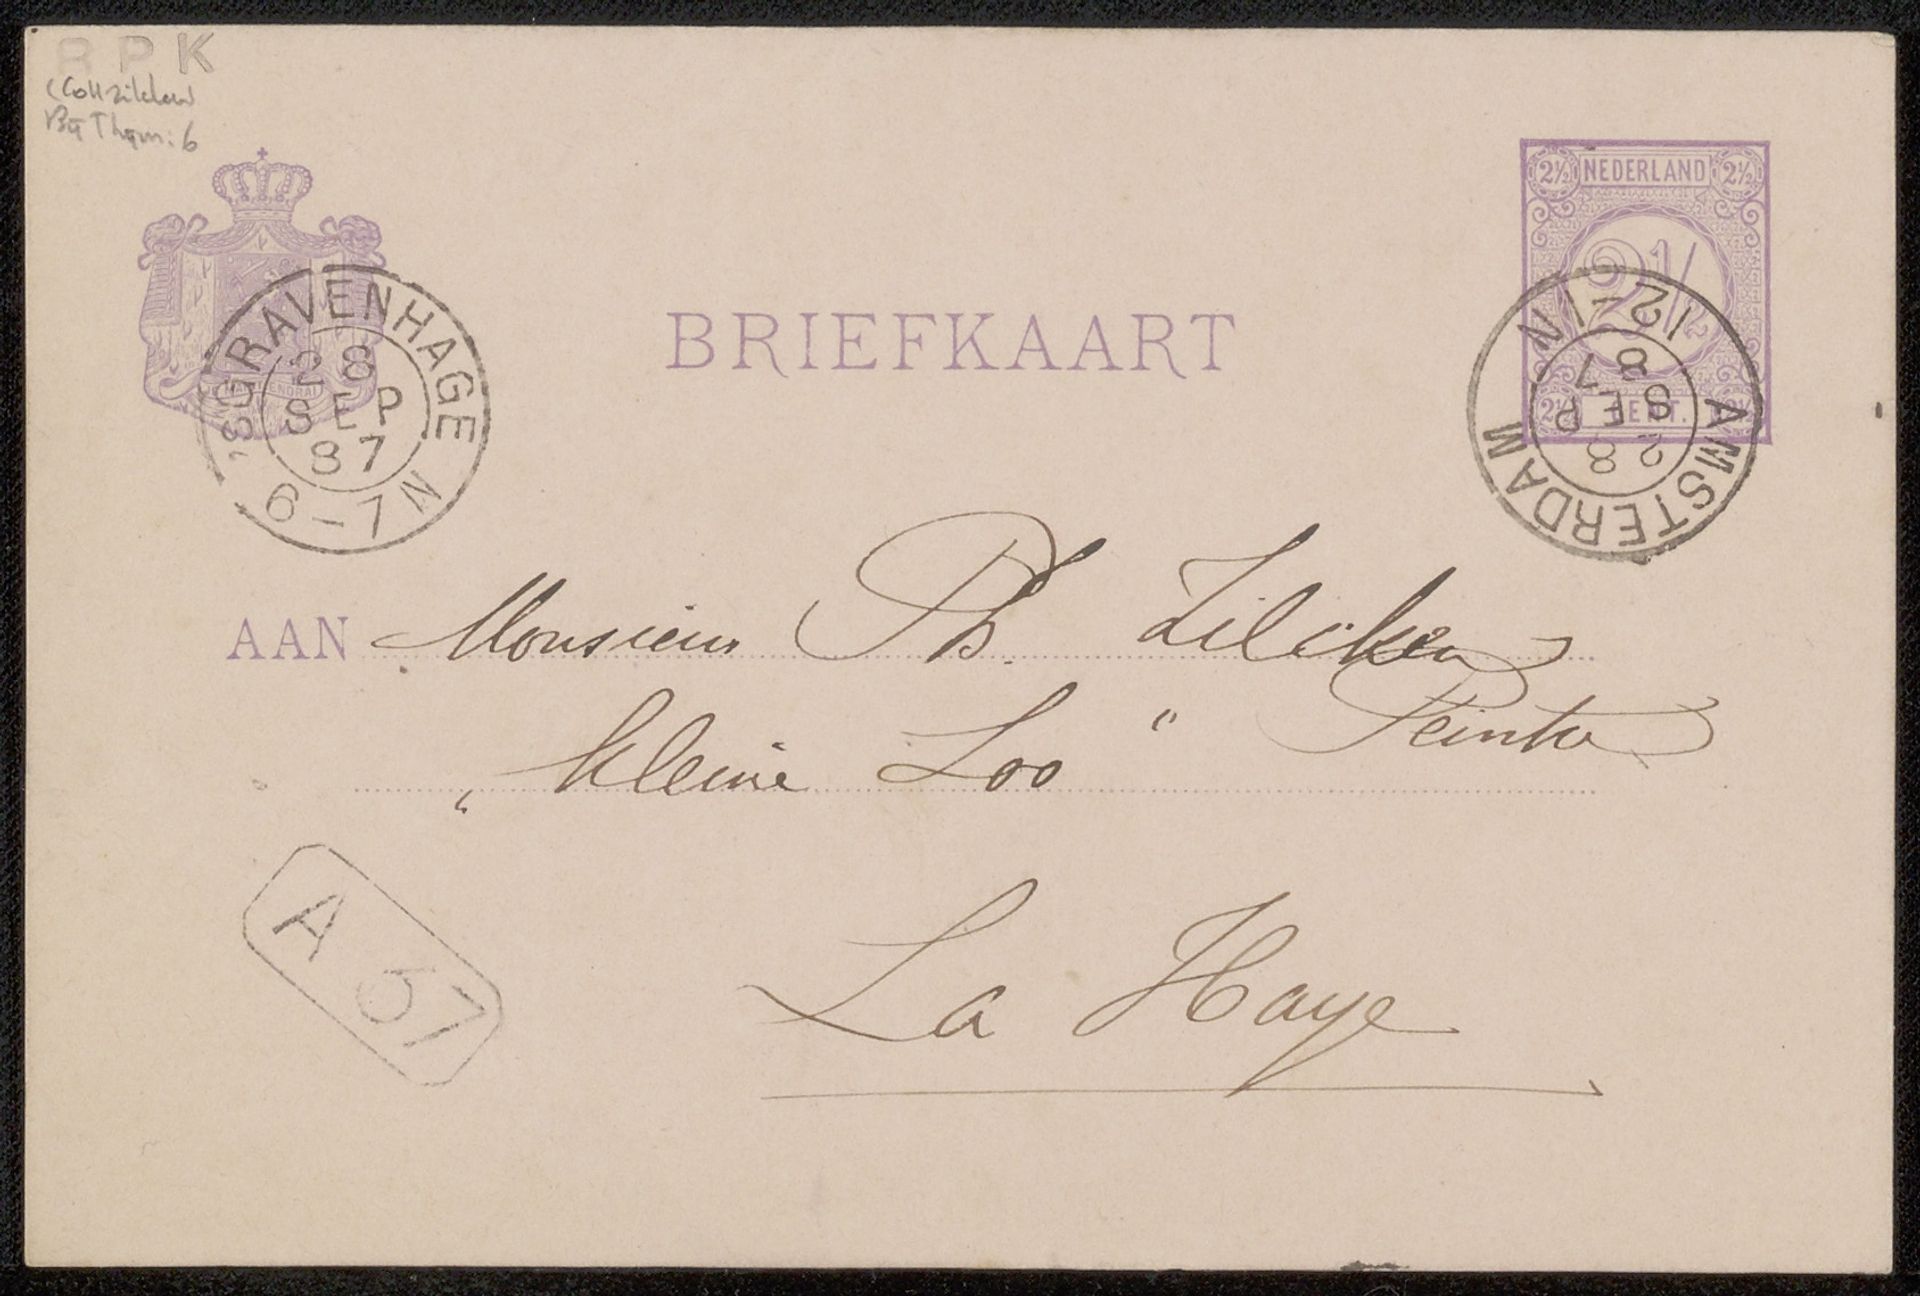 RPK
(Coll Zilcken
Bij Thijm: 6
NEDERLAND
2½ 2½
2½
2½ CENT. 2½
BRIEFKAART
'SGRAVENHAGE
28
SEP
87
6-7N
AMSTERDAM
28
SEP
87
12-1N
AAN Monsieur Ph. Zilcken
Peintre
„kleine Loo"
La Haye
A 37